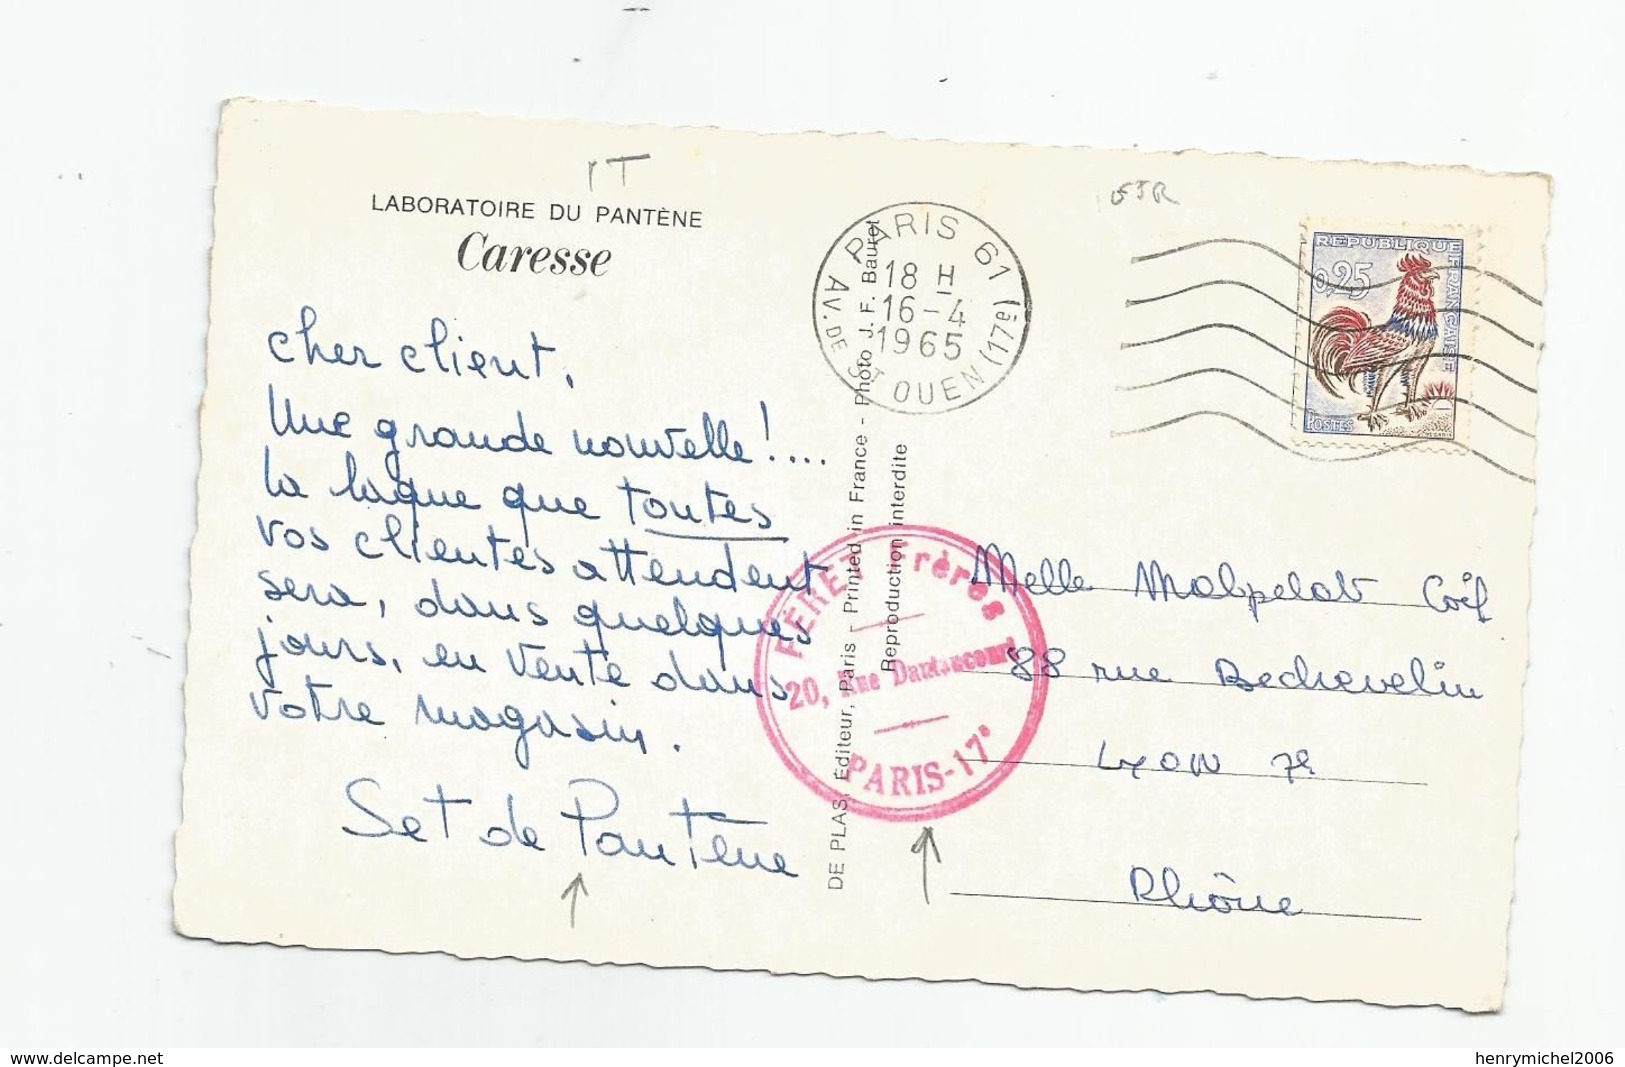 LABORATOIRE DU PANTÈNE
Caresse
cher client,
Une grande nouvelle!....
la laque que toutes
vos clientes attendent
sera, dans quelques
jours, en vente dans
votre magasin.
Set de Pantène
DE PLAS, Éditeur, Paris - Printed in France - Photo J. F. Bauret
Reproduction interdite
PARIS 61 (17è)
18 H
16-4
1965
AV. DE ST OUEN
REPUBLIQUE FRANÇAISE
0,25
POSTES
FÉRET Frères
20, Rue Dautancourt
PARIS-17e
Melle Malpelat Coif
88 rue Bechevelin
Lyon 7e
Rhône
www.delcampe.net
henrymichel2006